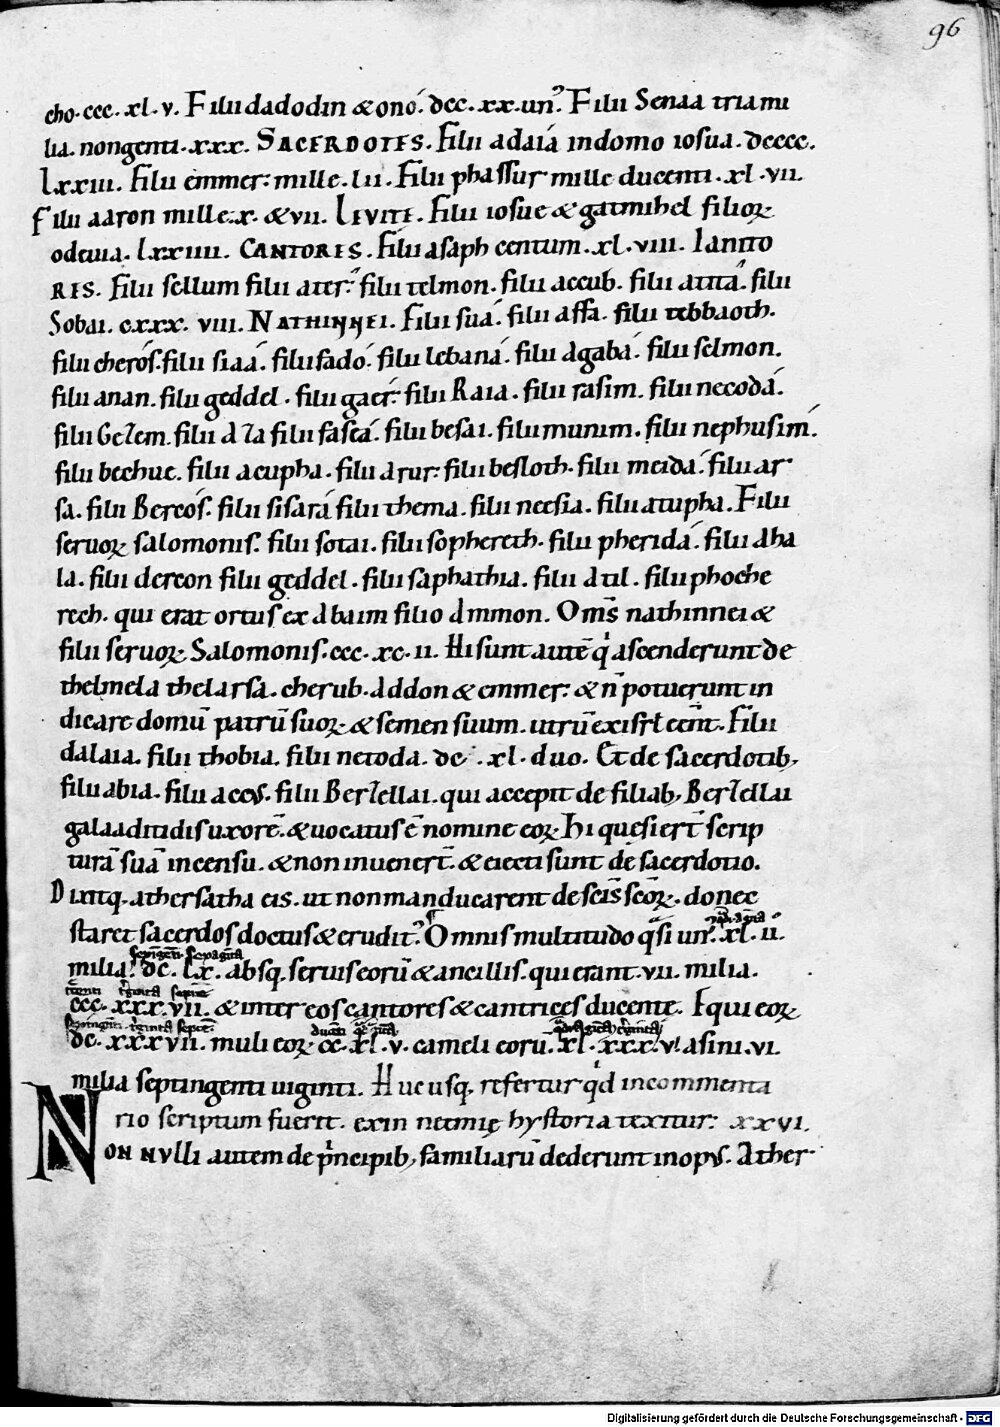 96
cho. ccc. xl. v. Filii dadodin & onó. dcc. xx. un⁹. Filii Senaa tria mi
lia. nongenti. xxx. SACERDOTES. Filii adaiá in domo iosua. dcccc.
lxxiii. Filii emmer. mille. lii. Filii phassur mille ducenti. xl. vii.
Filii aaron mille. x. & vii. LEVITE. Filii iosue & gatmihel filioꝝ
odeuia. lxxiiii. CANTORES. Filii asaph centum. xl. viii. Ianito
RES. Filii sellum filii ater. filii telmon. filii accub. filii atitá. filii
Sobai. cxxx. viii. NATHINNEI. Filii suá. filii assa. filii tebbaoth.
filii cherós. filii siaá. filii fadó. filii lebaná. filii agabá. filii selmon.
filii anan. filii geddel. filii gaér. filii Raia. filii rasim. filii necodá.
filii Gezem. filii aza filii faseá. filii besai. filii munim. filii nephusim.
filii becbuc. filii acupha. filii arur. filii besloth. filii meidá. filii ar
sa. filii Bercós. filii sisará filii thema. filii necsia. filii atupha. Filii
seruoꝝ salomonis. filii sotai. filii sophereth. filii pheridá. filii aha
la. filii dercon filii geddel. filii saphathia. filii atil. filii phoche
rech. qui erat ortus ex abaim filio ammon. Oms̄ nathinnei &
filii seruoꝝ Salomonis. ccc. xc. ii. Hi sunt autē q̇ ascenderunt de
thelmela thelarsa. cherub. addon & emmer. & n̄ potuerunt in
dicare domū patrū suoꝝ & semen suum. utrū ex isrl̄ eēnt. Filii
dalaia. filii thobia. filii netoda. dc. xl. duo. Et de sacerdotib;
filii abia. filii accus. filii Berzellai. qui accepit de filiab; Berzellai
galaaditidis uxorē. & uocatus ē nomine eoꝝ Hi quęsiert̄ scrip
turā suā in censu. & non inuenert̄. & eiecti sunt de sacerdotio.
Dixitq; athersatha eis. ut non manducarent de scīs scōꝝ. donec
staret sacerdos doctus & erudit⁹. Omnis multitudo q̄si un⁹. xl. ii.
milia. dc. lx. absq; seruis eorū & ancillis. qui erant. vii. milia.
ccc. xxx. vii. & inter eos cantores & cantrices ducentę. Equi eoꝝ
dc. xxxvii. muli eoꝝ cc. xl. v. cameli eorū. xl. xxx. v. asini. vi.
milia septingenti uiginti. Huc usq; refertur qd̄ in commenta
rio scriptum fuerit. exin neemię hystoria texitur. xxvi.
NON NVLLI autem de p̄ncipib; familiarū dederunt in opus. Ather
Digitalisierung gefördert durch die Deutsche Forschungsgemeinschaft - DFG